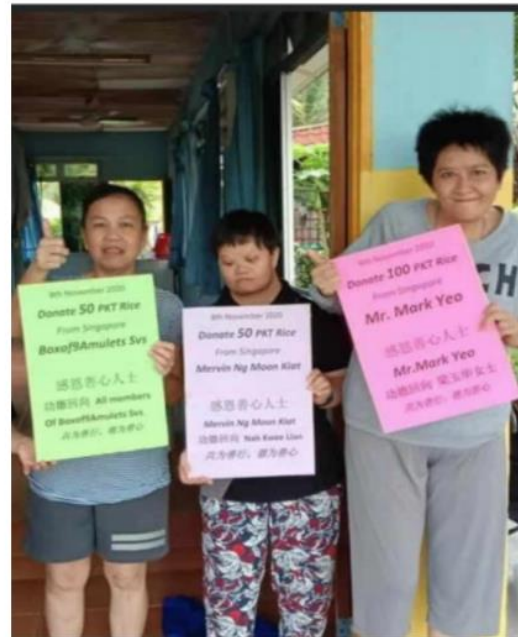 8th November 2020
Donate 50 PKT Rice
From Singapore
Boxof9Amulets Svs
感恩善心人士
功德回向 All members
Of Boxof9Amulets Svs
8th November 2020
Donate 50 PKT Rice
From Singapore
Mervin Ng Moon Kiat
感恩善心人士
Mervin Ng Moon Kiat
功德回向 Nah Kwee Lian
8th November 2020
Donate 100 PKT Rice
From Singapore
Mr. Mark Yeo
感恩善心人士
Mr.Mark Yeo
功德回向 梁玉华女士
CH